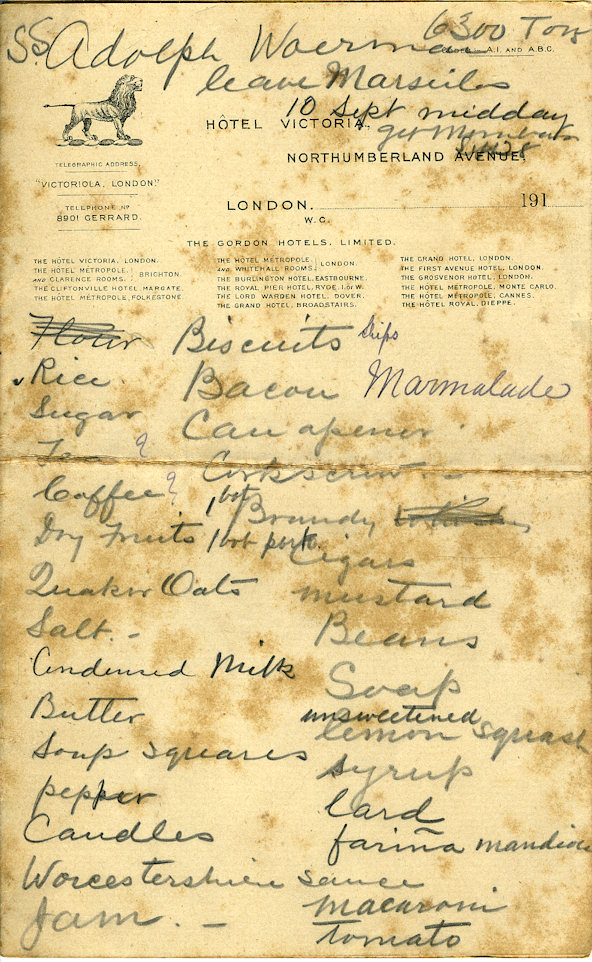 SS. Adolph Woerman 6300 Tons
A.I. AND A.B.C.
leave Marseilles
10 Sept midday
HÔTEL VICTORIA,
NORTHUMBERLAND AVENUE,
TELEGRAPHIC ADDRESS,
"VICTORIOLA, LONDON."
TELEPHONE Nº
8901 GERRARD.
LONDON. 191
W.C.
THE GORDON HOTELS, LIMITED.
THE HÔTEL VICTORIA, LONDON.
THE HÔTEL METROPOLE,
AND CLARENCE ROOMS, BRIGHTON.
THE CLIFTONVILLE HOTEL, MARGATE.
THE HÔTEL MÉTROPOLE, FOLKESTONE
THE HÔTEL MÉTROPOLE,
AND WHITEHALL ROOMS, LONDON.
THE BURLINGTON HOTEL, EASTBOURNE.
THE ROYAL PIER HOTEL, RYDE. I. OF W.
THE LORD WARDEN HOTEL, DOVER.
THE GRAND HOTEL, BROADSTAIRS.
THE GRAND HOTEL, LONDON.
THE FIRST AVENUE HOTEL, LONDON.
THE GROSVENOR HOTEL, LONDON.
THE HÔTEL MÉTROPOLE, MONTE CARLO.
THE HÔTEL MÉTROPOLE, CANNES.
THE HÔTEL ROYAL, DIEPPE.
Flour
Rice
Sugar
Tea ?
Coffee ?
Dry Fruits
Quaker Oats
Salt. -
Condensed Milk
Butter
Soup squares
pepper
Candles
Worcestershire sauce
Jam. -
Biscuits
Bacon Marmalade
Can opener
Corkscrew -
1 bot Brandy
1 bot port.
Cigars
mustard
Beans
Soap
unsweetened
lemon squash
syrup
lard
fariña mandioc
macaroni
tomato